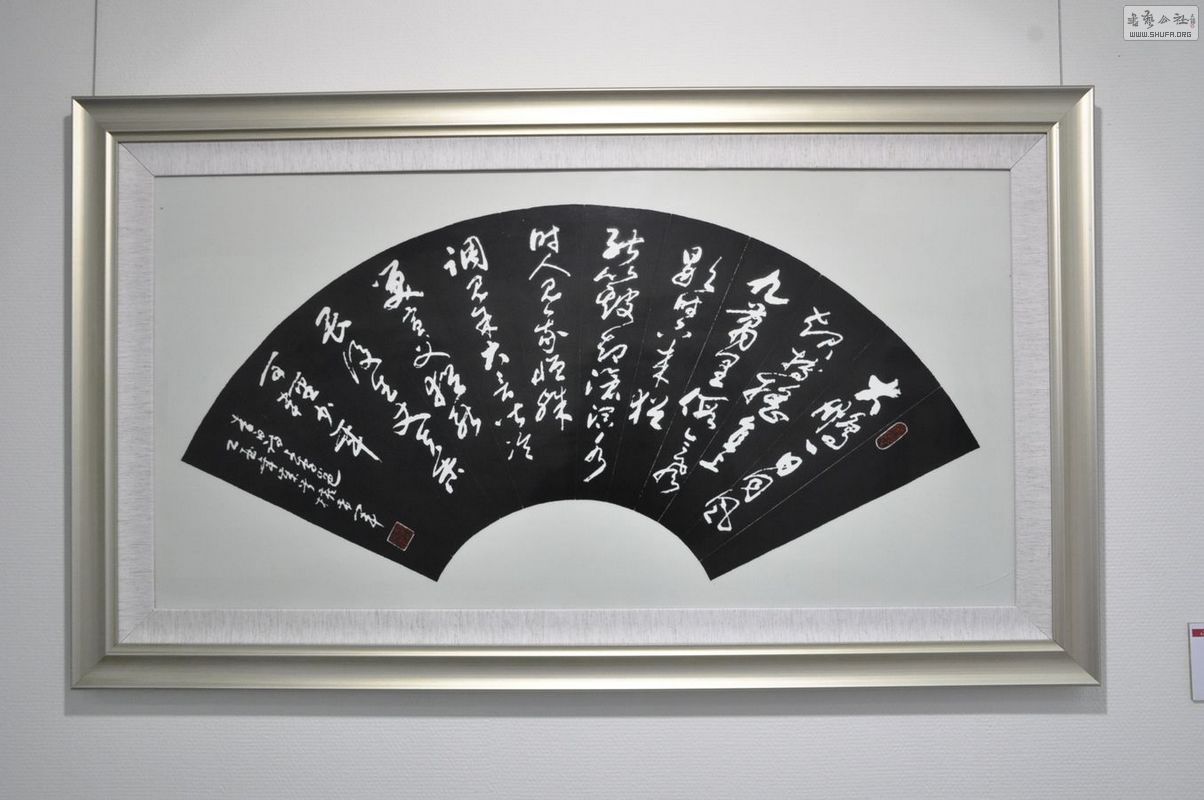 大鹏一日同风
起扶摇直上
九万里假令风
歇时下来犹
能簸却沧溟水
时人见我恒殊
调见余大言皆冷
笑宣父犹能
畏后生丈夫未
可轻少年
李白诗上李邕
书艺公社
WWW.SHUFA.ORG